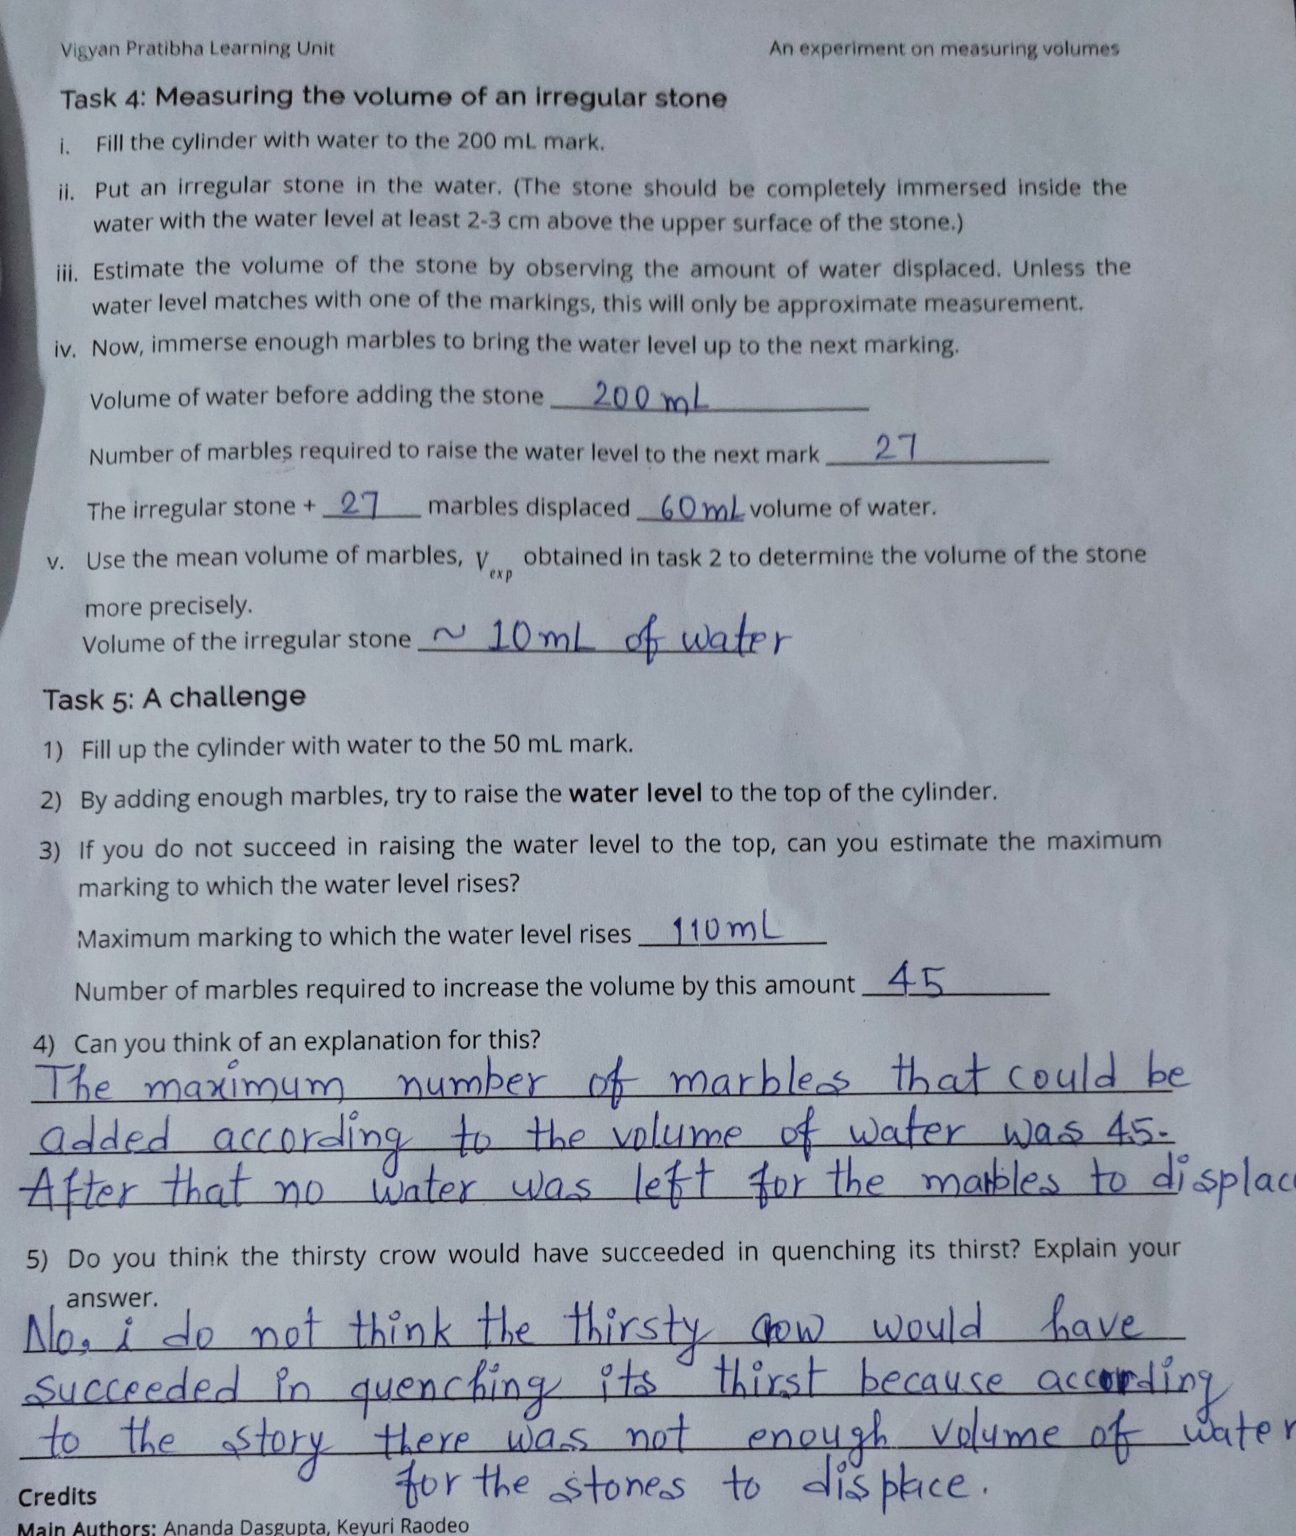 Vigyan Pratibha Learning Unit An experiment on measuring volumes
Task 4: Measuring the volume of an irregular stone
i. Fill the cylinder with water to the 200 mL mark.
ii. Put an irregular stone in the water. (The stone should be completely immersed inside the
water with the water level at least 2-3 cm above the upper surface of the stone.)
iii. Estimate the volume of the stone by observing the amount of water displaced. Unless the
water level matches with one of the markings, this will only be approximate measurement.
iv. Now, immerse enough marbles to bring the water level up to the next marking.
Volume of water before adding the stone 200 mL
Number of marbles required to raise the water level to the next mark 27
The irregular stone + 27 marbles displaced 60 mL volume of water.
v. Use the mean volume of marbles, V exp obtained in task 2 to determine the volume of the stone
more precisely.
Volume of the irregular stone ~ 10 mL of water
Task 5: A challenge
1) Fill up the cylinder with water to the 50 mL mark.
2) By adding enough marbles, try to raise the water level to the top of the cylinder.
3) If you do not succeed in raising the water level to the top, can you estimate the maximum
marking to which the water level rises?
Maximum marking to which the water level rises 110 mL
Number of marbles required to increase the volume by this amount 45
4) Can you think of an explanation for this?
The maximum number of marbles that could be
added according to the volume of water was 45.
After that no water was left for the marbles to displac
5) Do you think the thirsty crow would have succeeded in quenching its thirst? Explain your
answer.
No, i do not think the thirsty crow would have
succeeded in quenching its thirst because according
to the story there was not enough volume of water
for the stones to displace.
Credits
Main Authors: Ananda Dasgupta, Keyuri Raodeo